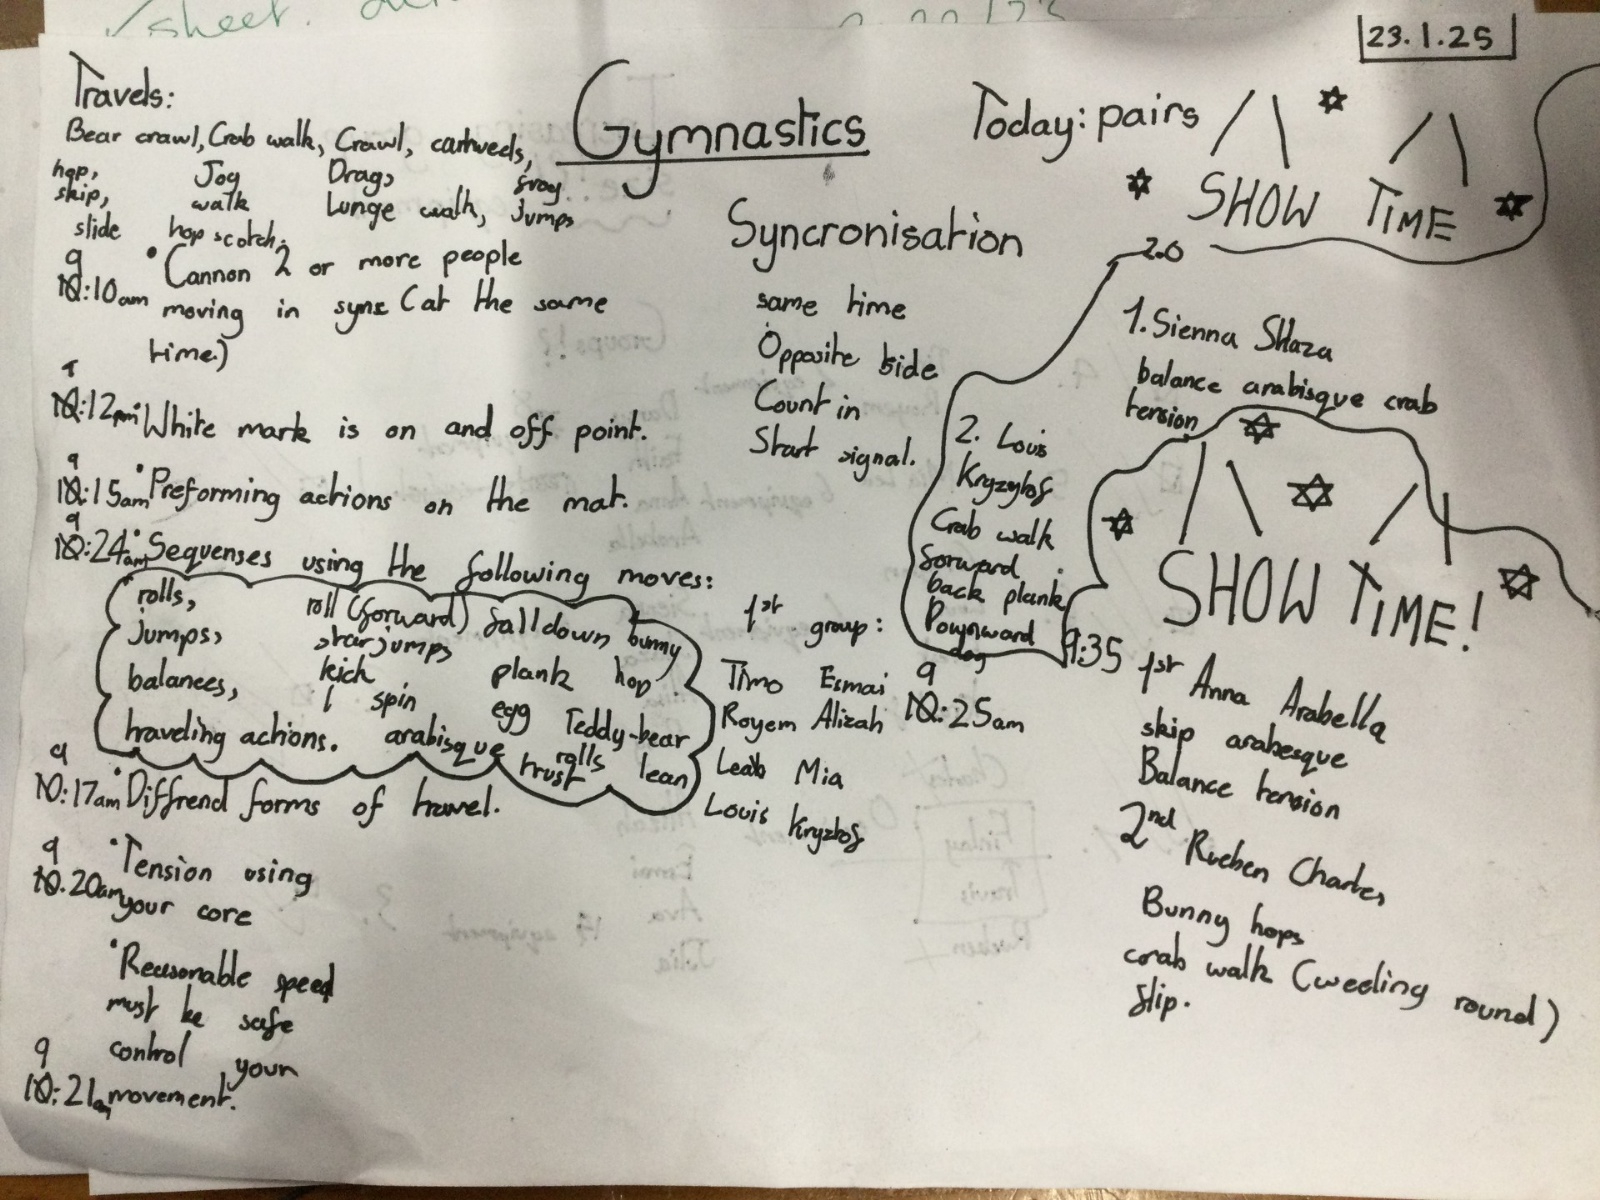 23.1.25
Gymnastics
Travels:
Bear crawl, Crab walk, Crawl, cartweels,
hop, Jog Drag, frog
skip, walk Lunge walk, jumps
slide hop scotch.
9
10:10am • Cannon 2 or more people
moving in sync (at the same
time.)
9
10:12pm • White mark is on and off point.
9
10:15am • Preforming actions on the mat.
9
10:24am • Sequenses using the following moves:
rolls, roll (forward) fall down bunny
jumps, star jumps
balances, kick plank hop
spin egg Teddy-bear
traveling actions. arabisque rolls
trust lean
9
10:17am • Diffrend forms of travel.
9
10:20am • Tension using
your core
• Reasonable speed
must be safe
control your
9
10:21am movement.
Syncronisation
same time
Opposite side
Count in
Start signal.
1st group:
Timo Esmai
Royem Alizah
Leah Mia
Louis Kryztof
Today: pairs
SHOW TIME
2.0
1. Sienna Shaza
balance arabisque crab
tension
2. Louis
Kryzytof
Crab walk
forward
back plank
Downward
dog
9
10:25am
SHOW TIME!
9:35
1st Anna Arabella
skip arabesque
Balance tension
2nd Rueben Charles
Bunny hops
crab walk (weeling round)
flip.